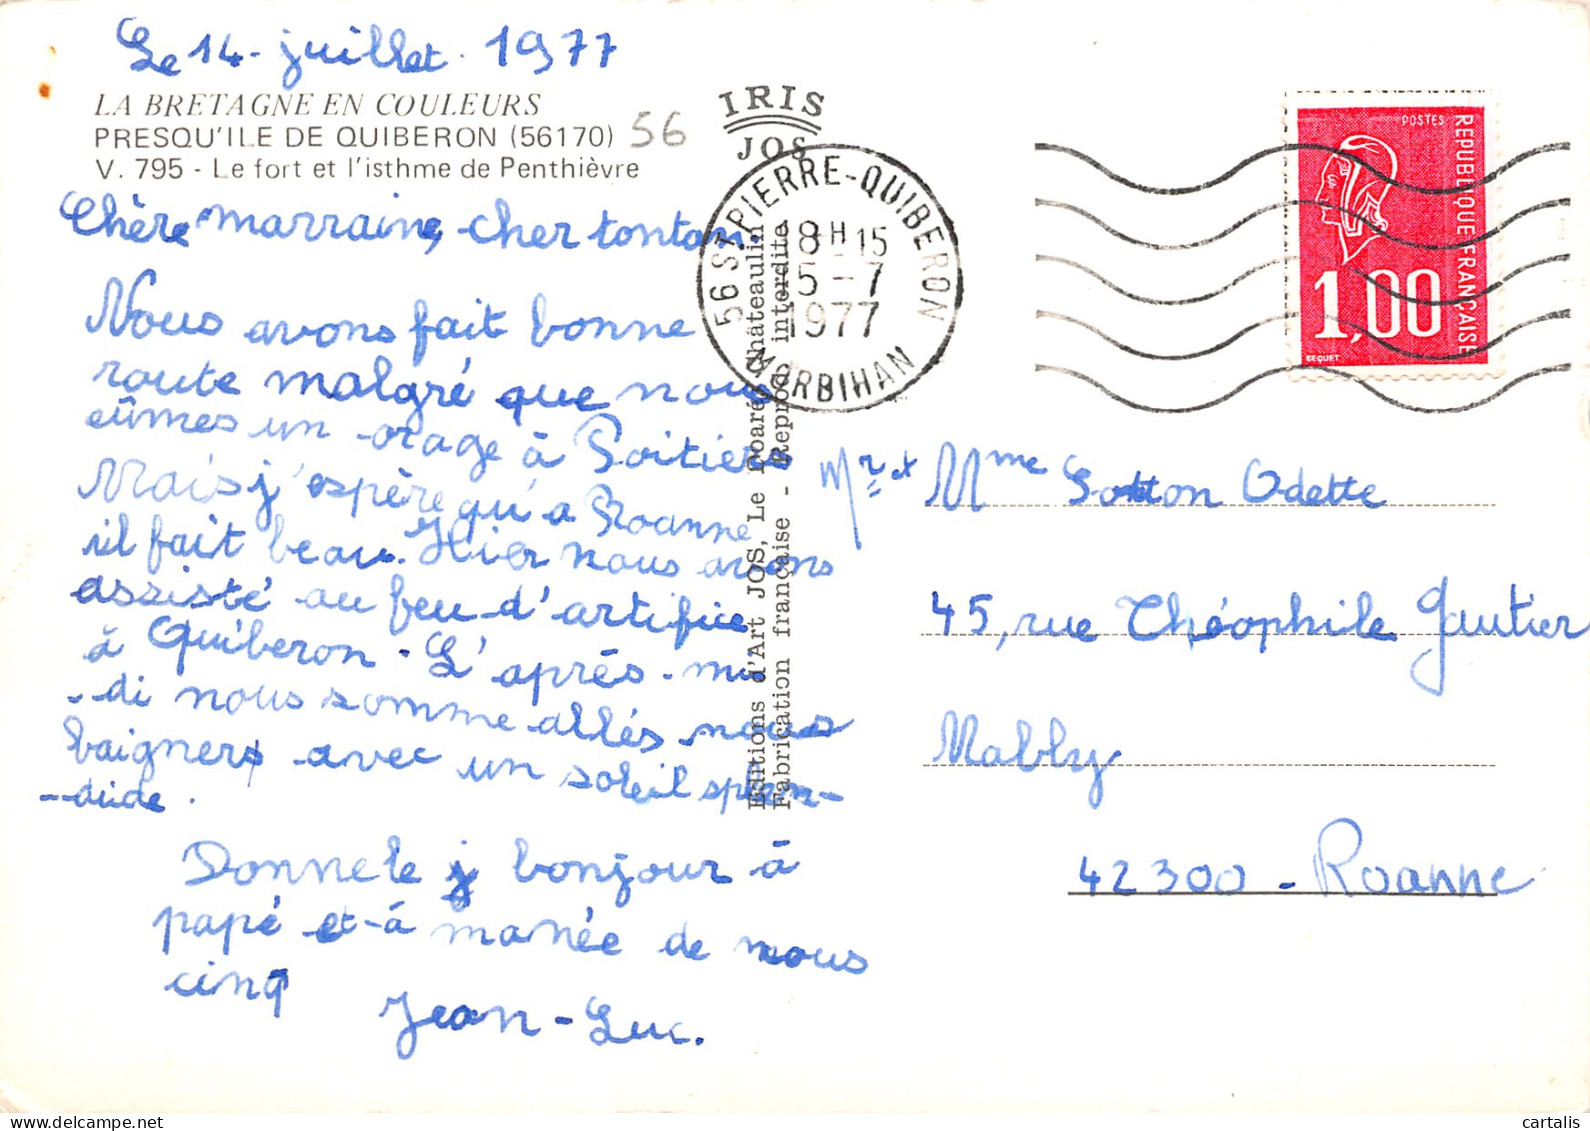 Le 14 - juillet . 1977
LA BRETAGNE EN COULEURS
PRESQU'ILE DE QUIBERON (56170) 56
V. 795 - Le fort et l'isthme de Penthièvre
Chère marraine, cher tonton.
Nous avons fait bonne
route malgré que nous
eûmes un orage à Poitiers
Mais j'espère qu'a Roanne
il fait beau. Hier nous avons
assisté au feu d'artifice
à Quiberon - L'après-mi
--di nous somme allés nous
baigners avec un soleil splen-
--dide .
Donne le j bonjour à
papé et à manée de nous
cinq
Jean-Luc.
IRIS
JOS
Editions d'Art JOS, Le Doaré, Châteaulin
Fabrication française - Reprod. interdite
56 ST PIERRE-QUIBERON
18H15
15-7
1977
MORBIHAN
POSTES
REPUBLIQUE FRANÇAISE
1,00
BEQUET
Mr et Mme Sotton Odette
45, rue Théophile Gautier
Mably
42300 - Roanne
cartalis.com